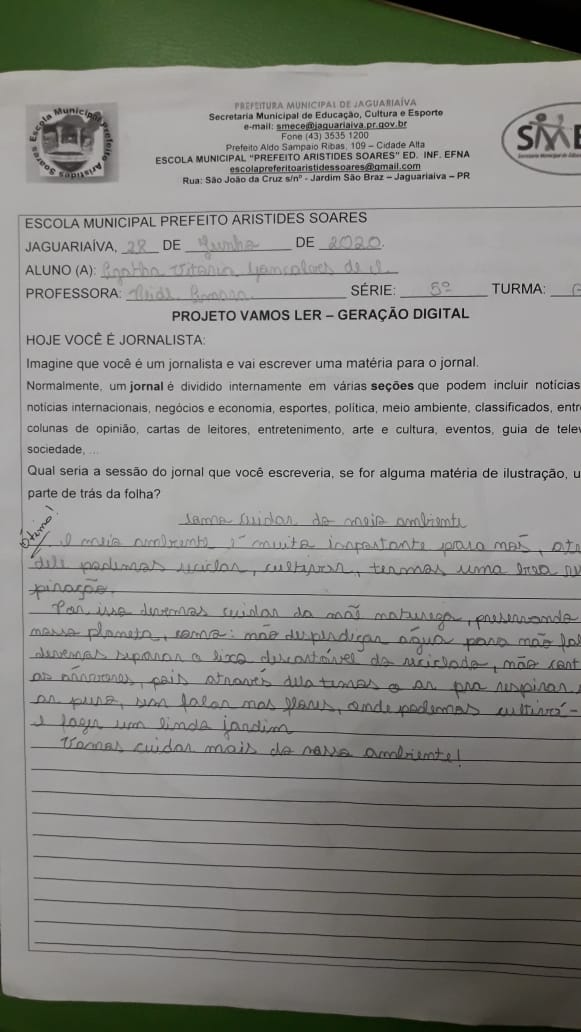 Escola Municipal Prefeito Aristides Soares
PREFEITURA MUNICIPAL DE JAGUARIAÍVA
Secretaria Municipal de Educação, Cultura e Esporte
e-mail: smece@jaguariaiva.pr.gov.br
Fone (43) 3535 1200
Prefeito Aldo Sampaio Ribas, 109 – Cidade Alta
ESCOLA MUNICIPAL "PREFEITO ARISTIDES SOARES" ED. INF. EFNA
escolaprefeitoaristidessoares@gmail.com
Rua: São João da Cruz s/nº - Jardim São Braz – Jaguariaiva – PR
SME
ESCOLA MUNICIPAL PREFEITO ARISTIDES SOARES
JAGUARIAÍVA, 28 DE Junho DE 2020.
ALUNO (A): Agatha Vitoria Gonçalves de
PROFESSORA: SÉRIE: 5º TURMA:
PROJETO VAMOS LER – GERAÇÃO DIGITAL
HOJE VOCÊ É JORNALISTA:
Imagine que você é um jornalista e vai escrever uma matéria para o jornal.
Normalmente, um jornal é dividido internamente em várias seções que podem incluir notícias
notícias internacionais, negócios e economia, esportes, política, meio ambiente, classificados, entr
colunas de opinião, cartas de leitores, entretenimento, arte e cultura, eventos, guia de telev
sociedade, ...
Qual seria a sessão do jornal que você escreveria, se for alguma matéria de ilustração, u
parte de trás da folha?
Ótimo!
Como cuidar do meio ambiente
O meio ambiente é muito importante para nós, atr
dele podemos reciclar, cultivar, termos uma boa
piração.
Por isso devemos cuidar da mãe natureza, preservando
nosso planeta, como: não desperdiçar água para não fal
devemos separar o lixo descartável do reciclado, não cort
as árvores, pois através dela temos o ar pra respirar,
ar puro, sem falar nas flores, onde podemos cultivá-
e fazer um lindo jardim
Vamos cuidar mais do nosso ambiente!